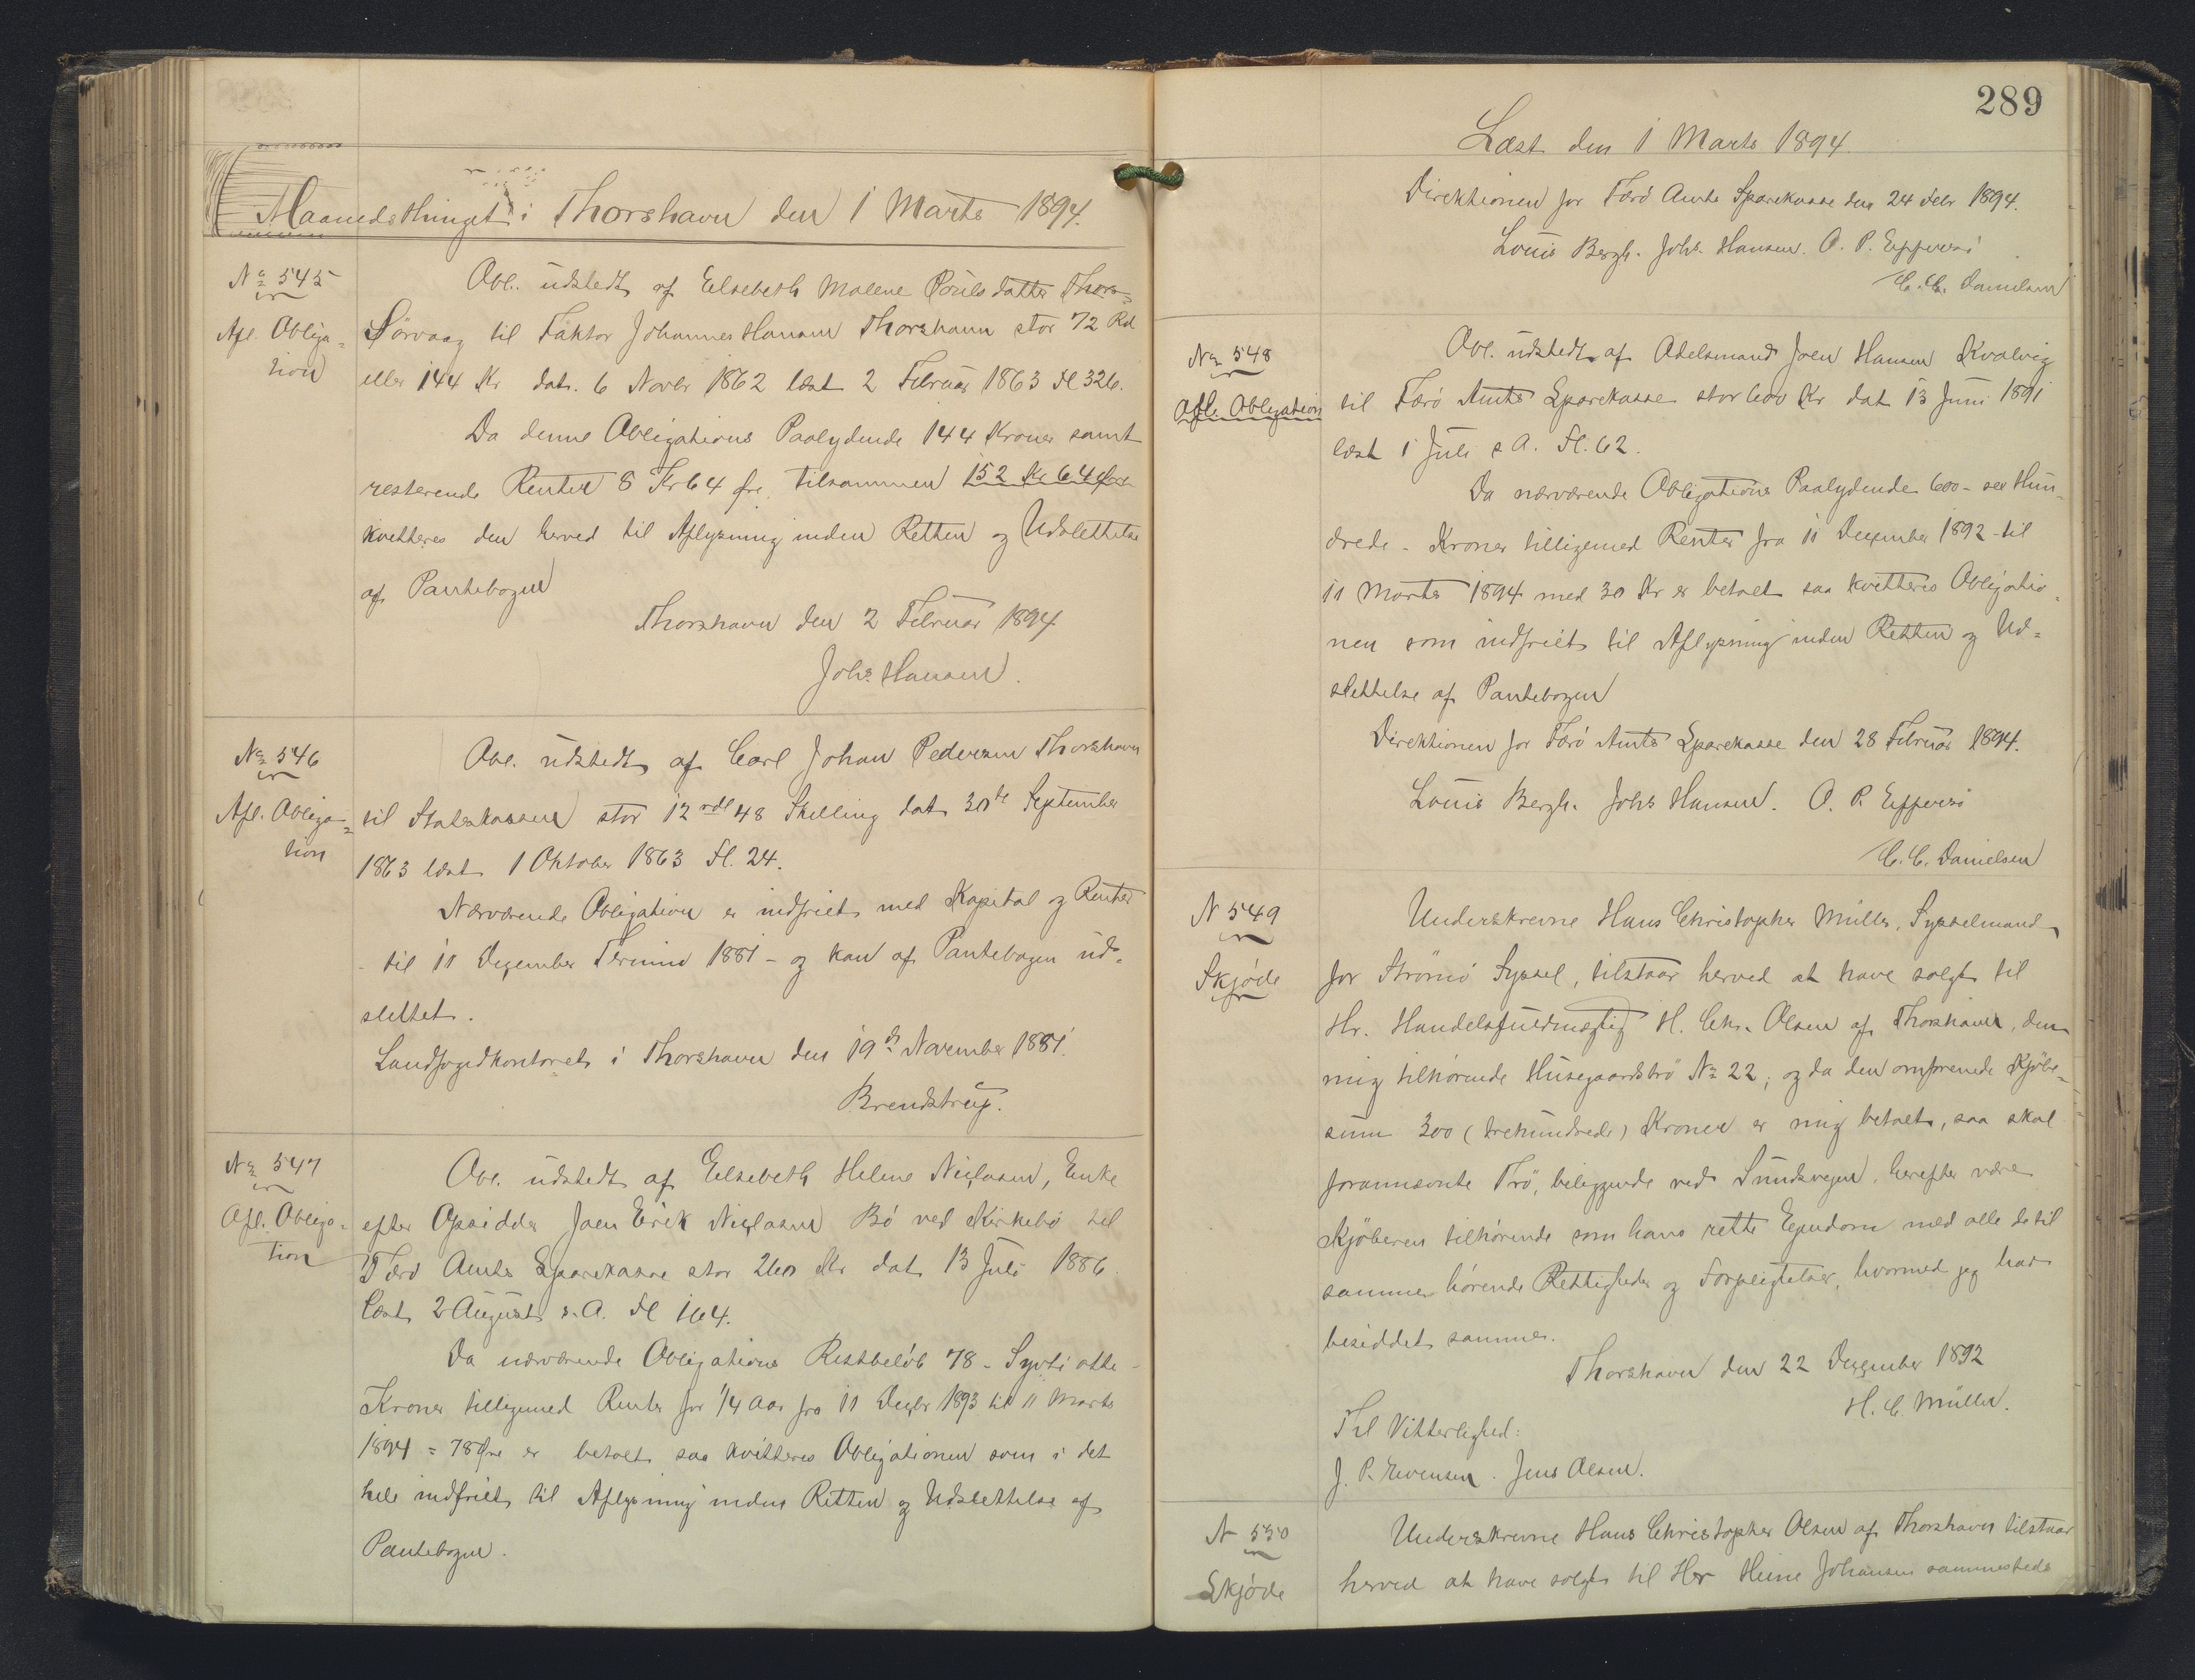 Maanedsthinget i Thorshavn den 1 Marts 1894.
No 545
Afl. Obliga-
tion
Obl. udstedt af Elsebeth Malene Poulsdatter Thors-
Sörvaag til Faktor Johannes Hansen Thorshavn stor 72 Rd
eller 144 Kr dat. 6 Novbr 1862 læst 2 Februar 1863 Fl 326.
Da denne Obligations Paalydende 144 Kroner samt
resterende Renter 8 Kr 64 Øre tilsammen 152 Kr 64 Øre
kvitteres den herved til Aflysning inden Retten og Udslettelse
af Pantebogen
Thorshavn den 2 Februar 1894
Johs Hansen.
No 546
Afl. Obliga-
tion
Obl. udstedt af Carl Johan Pedersen Thorshavn
til Statskassen stor 12 rdl 48 Skilling dat 30te September
1863 læst 1 Oktober 1863 Fl. 24.
Nærværende Obligation er indfriet med Kapital og Renter
- til 11 Dezember Termin 1881 - og kan af Pantebogen ud-
slettet.
Landfogedkontoret i Thorshavn den 19de November 1881.
Brendstrup.
No 547
Afl. Obliga-
tion
Obl. udstedt af Elsebeth Helene Niclasen, Enke
efter Opsidder Joen Erik Niclasen Bö ved Kirkebö til
Færö Amts Sparekasse stor 260 Kr dat 13 Juli 1886
læst 2 August s. A. Fl 164.
Da nærværende Obligations Restbelöb 78 - Syvti otte -
Kroner tilligemed Renter for 1/4 Aar fra 11 Dezbr 1893 til 11 Marts
1894 = 78 Øre er betalt saa kvitteres Obligationen som i det
hele indfriet til Aflysning inden Retten og Udslettelse af
Pantebogen.
289
Læst den 1 Marts 1894.
Direktionen for Færö Amts Sparekasse den 24 Febr 1894.
Louis Bergh. Johs. Hansen. O. P. Effersö
C. C. Danielsen
No 548
Afl. Obligation
Obl. udstedt af Odelsmand Joen Hansen Kvalvig
til Færö Amts Sparekasse stor 600 Kr dat 13 Juni 1891
læst 1 Juli s A. Fl. 62.
Da nærværende Obligations Paalydende 600 - sex Hun-
drede - Kroner tilligemed Renter fra 11 Dezember 1892 - til
11 Marts 1894 med 30 Kr er betalt saa kvitteres Obligatio-
nen som indfriet til Aflysning inden Retten og Ud-
slettelse af Pantebogen
Direktionen for Færö Amts Sparekasse den 28 Februar 1894.
Louis Bergh. Johs Hansen. O. P. Effersö
C. C. Danielsen
N 549
Skjöde
Underskrevne Hans Christopher Müller, Sysselmand
for Strömö Syssel, tilstaar herved at have solgt til
Hr. Handelsfuldmægtig H. Chr. Olsen af Thorshavn, den
mig tilhörende Husegaardströ No 22; og da den omforenede Kjöbe-
sum 300 (trehundrede) Kroner er mig betalt, saa skal
forannævnte Trö, beliggende ved Sundsvegen, herefter være
Kjöberen tilhörende som hans rette Ejendom med alle de til
sammen hörende Rettigheder og Forpligtelser, hvormed jeg har
besiddet samme.
Thorshavn den 22 Dezember 1892
H. C. Müller.
Til Vitterlighed:
J. P. Evensen. Jens Olsen.
N 550
Skjöde
Underskrevne Hans Christopher Olsen af Thorshavn tilstaar
herved at have solgt til Her Heine Johansen sammesteds